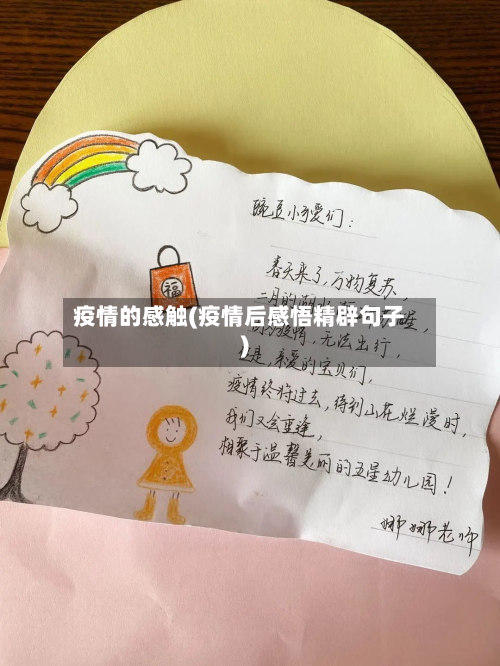 豌豆小可爱们：
春天来了，万物复苏，
福
二月的
疫情的感触(疫情后感悟精辟句子
)
疫情，无法出行，
是，亲爱的宝贝们，
疫情终将过去，待到山花烂漫时，
我们又会重逢，
相聚于温馨美丽的五星幼儿园！
娜娜老师